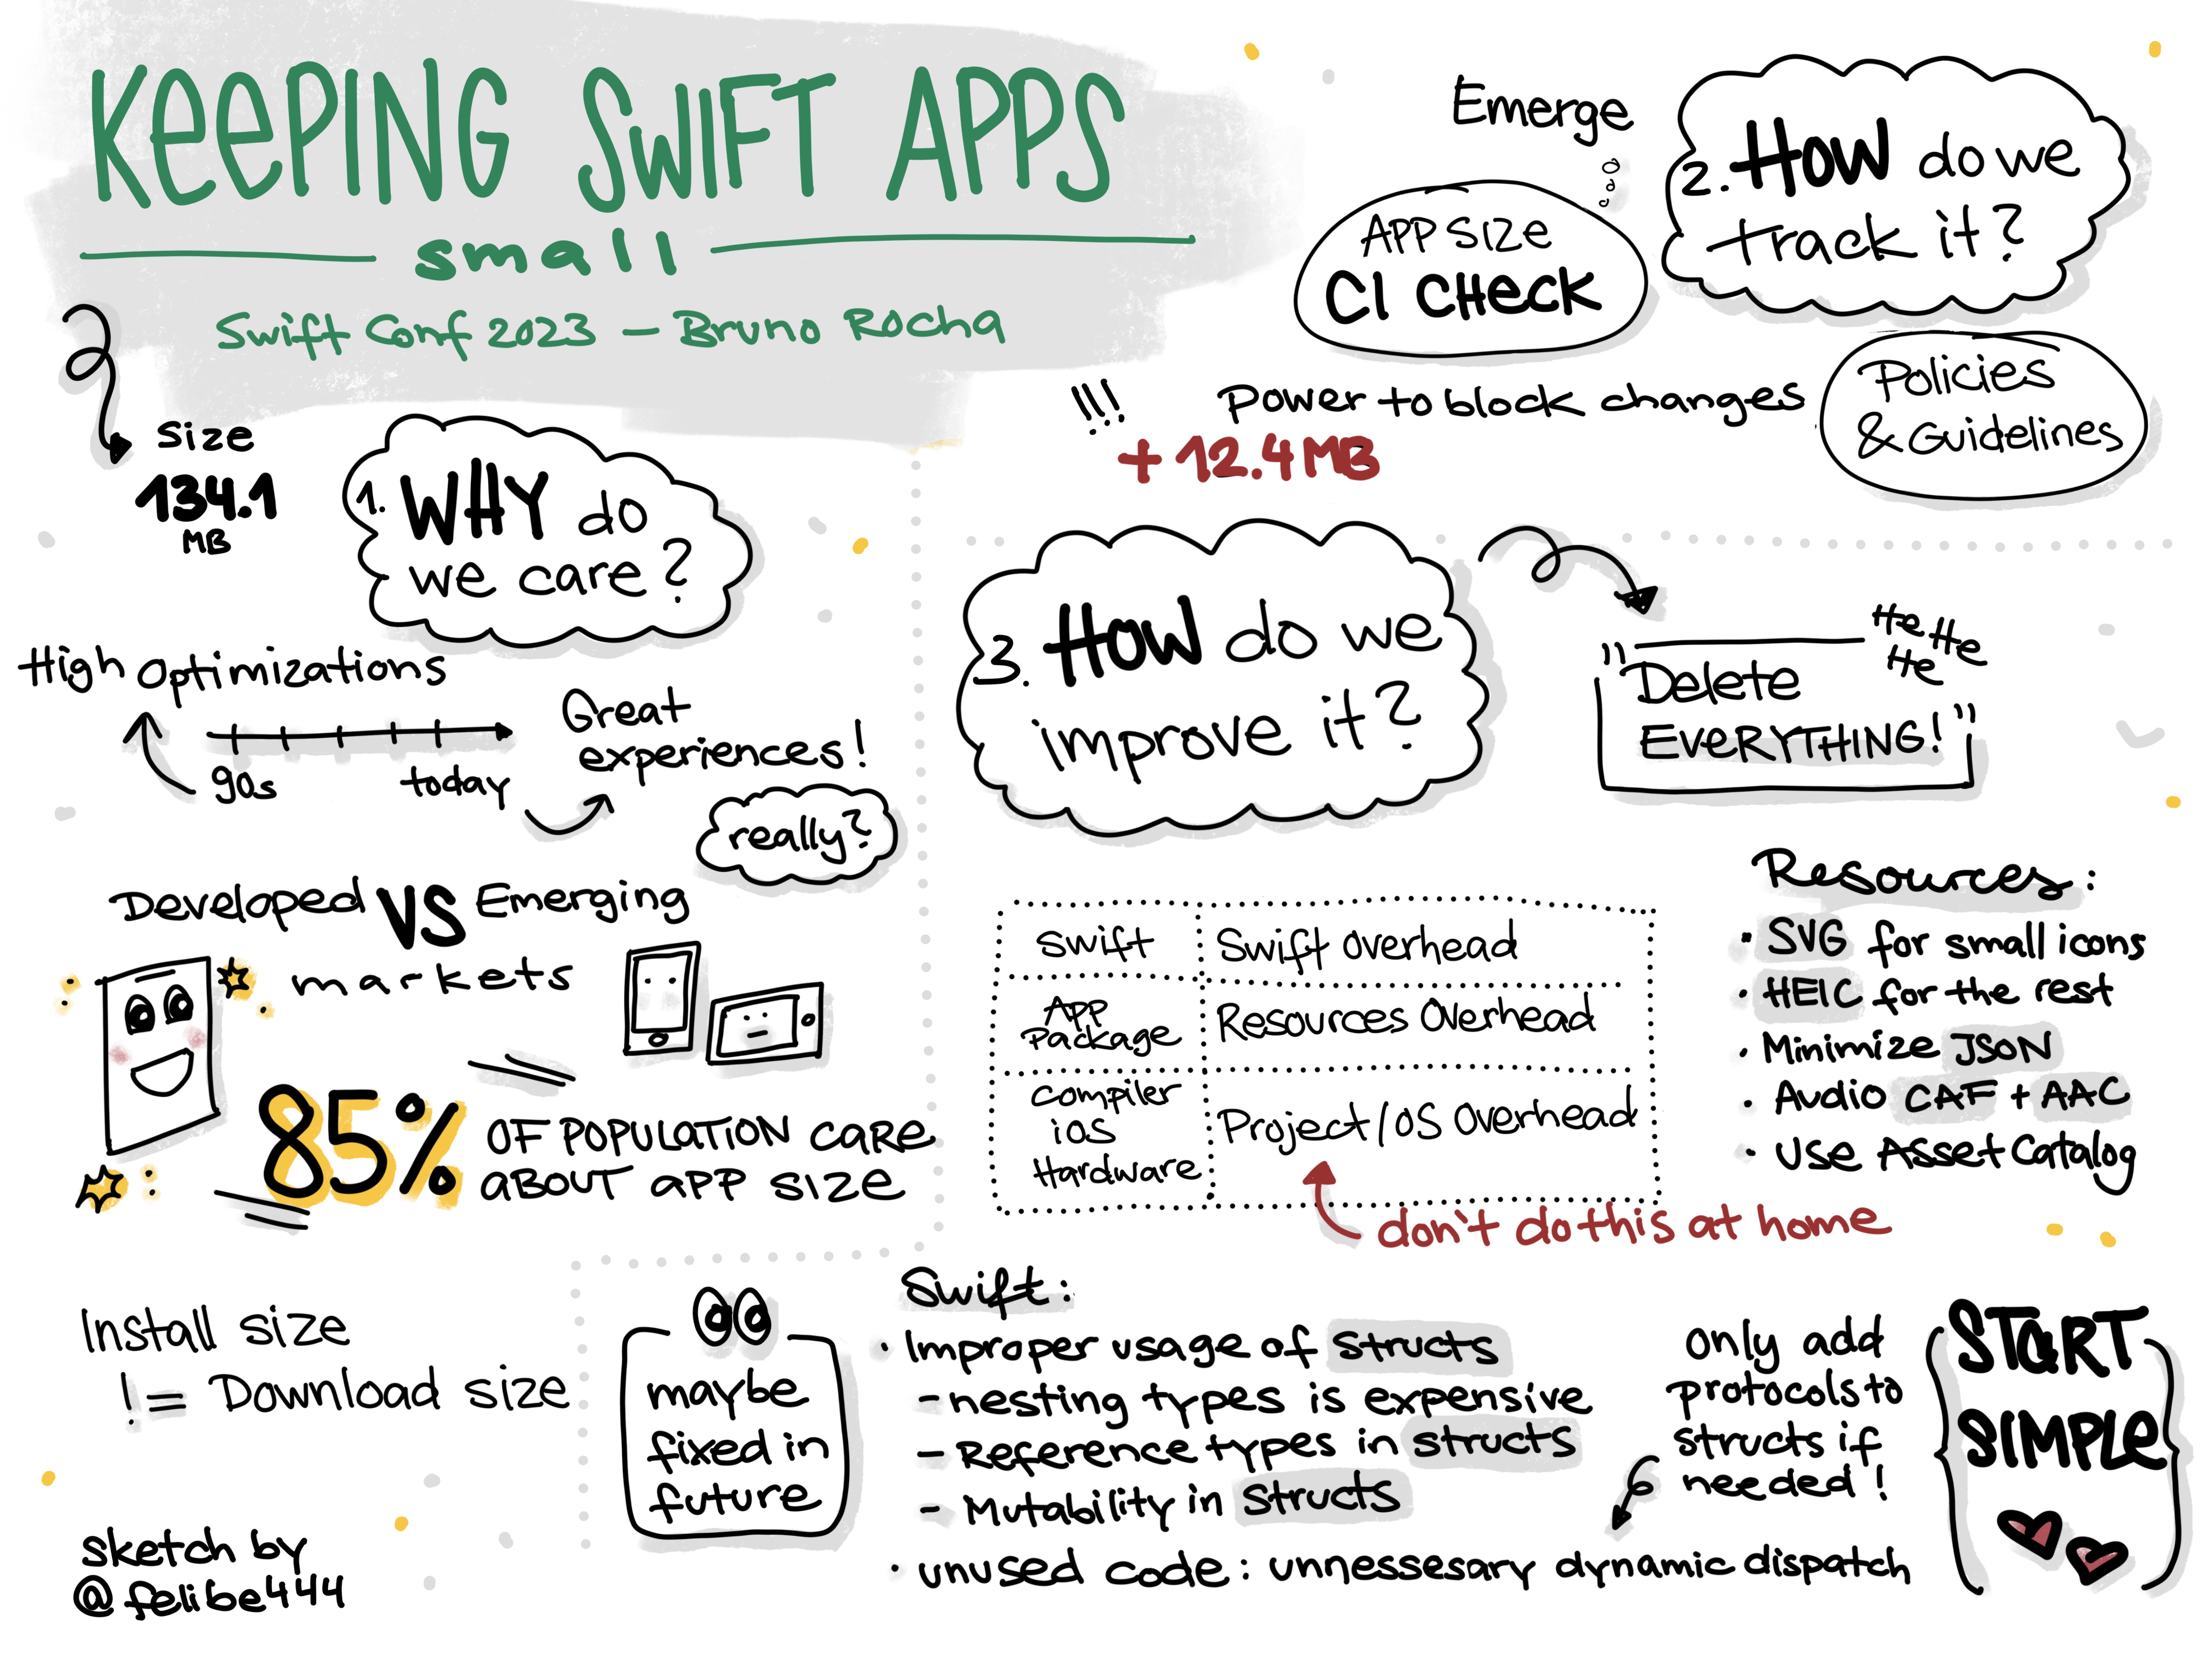 KEEPING SWIFT APPS
small
Swift Conf 2023 – Bruno Rocha
Size
134.1
MB
1. WHY do
we care?
High Optimizations
90s
today
Great
experiences!
really?
Developed VS Emerging
markets
85%
OF POPULATION CARE
ABOUT APP SIZE
Install size
!= Download size
sketch by
@felibe444
Emerge
APP SIZE
CI CHECK
2. HOW do we
track it?
Policies
& Guidelines
!!! Power to block changes
+ 12.4 MB
3. HOW do we
improve it?
"Delete
EVERYTHING!"
He He
He
Swift
Swift Overhead
App
Package
Resources Overhead
Compiler
iOS
Hardware
Project/OS Overhead
don't do this at home
Resources:
• SVG for small icons
• HEIC for the rest
• Minimize JSON
• Audio CAF + AAC
• Use Asset Catalog
maybe
fixed in
future
Swift:
• Improper usage of structs
- nesting types is expensive
- Reference types in structs
- Mutability in structs
• unused code: unnessesary dynamic dispatch
only add
protocols to
structs if
needed!
START
SIMPLE